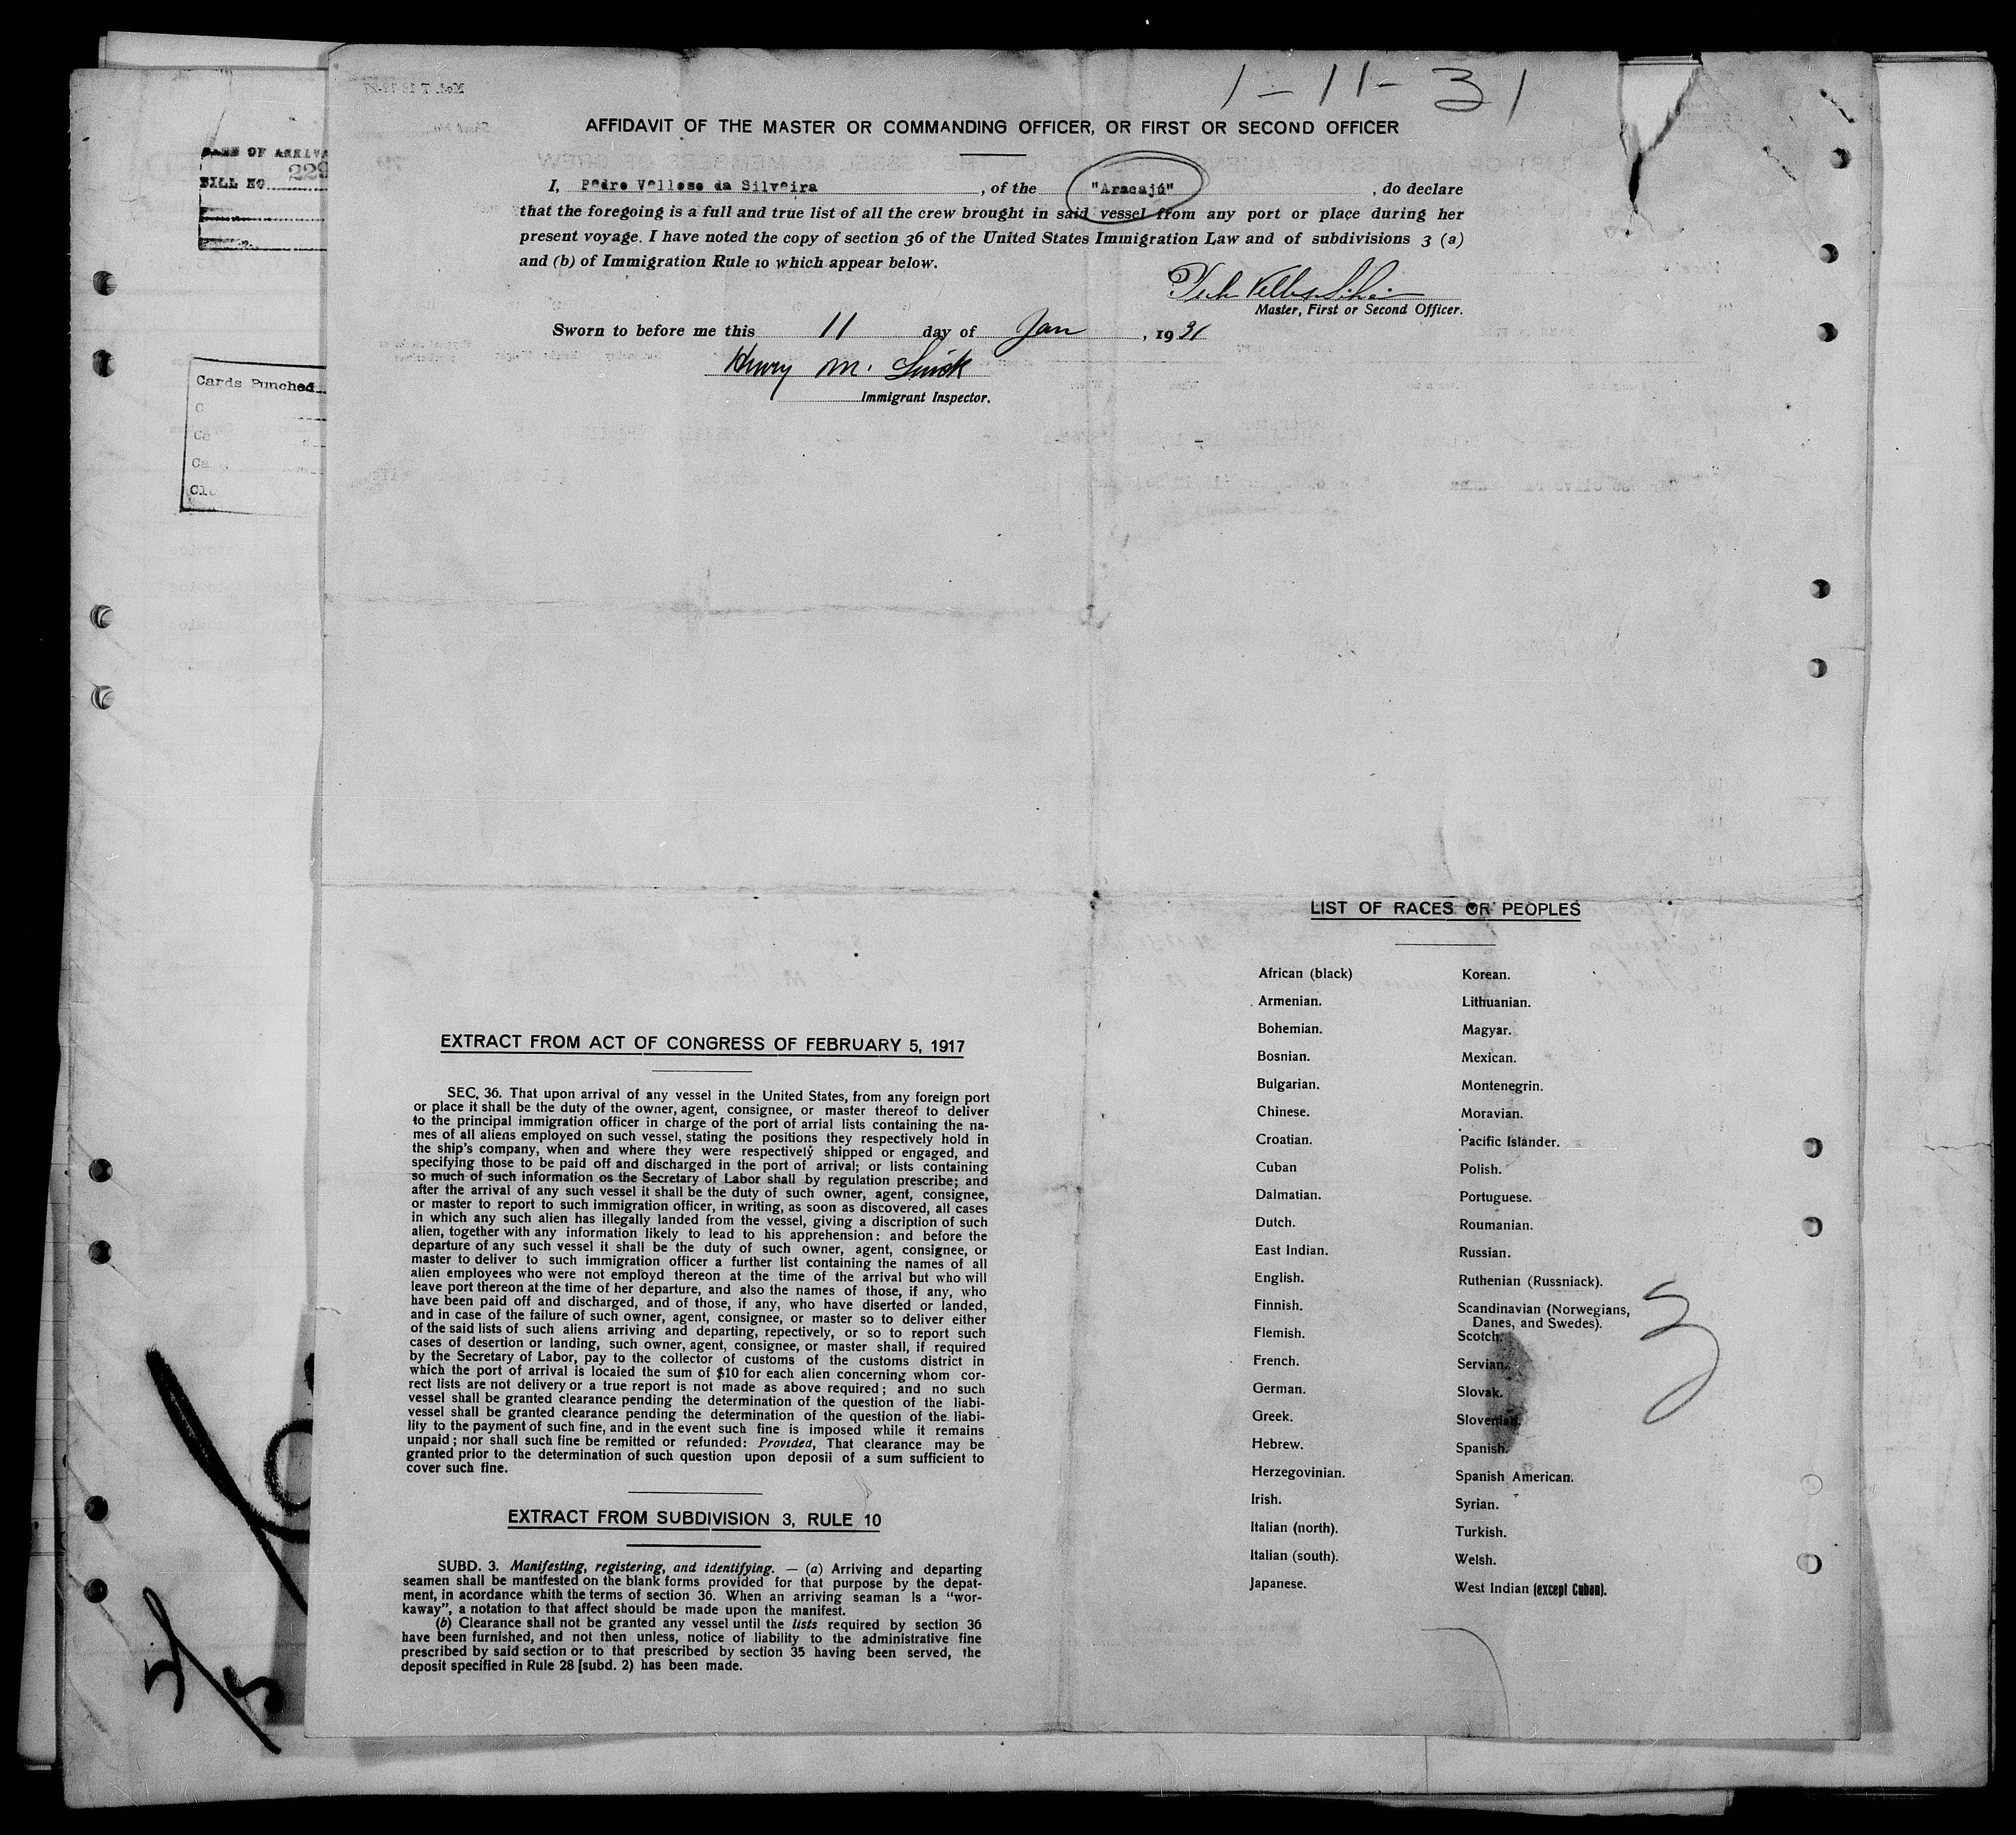 1-11-31
AFFIDAVIT OF THE MASTER OR COMMANDING OFFICER, OR FIRST OR SECOND OFFICER
I, Pedro Velloso da Silveira, of the "Aracajú", do declare
that the foregoing is a full and true list of all the crew brought in said vessel from any port or place during her
present voyage. I have noted the copy of section 36 of the United States Immigration Law and of subdivisions 3 (a)
and (b) of Immigration Rule 10 which appear below.
Master, First or Second Officer.
Sworn to before me this 11 day of Jan, 1931
Henry M.
Immigrant Inspector.
BILL NO 229
Cards Punched
LIST OF RACES OR PEOPLES
African (black)
Armenian.
Bohemian.
Bosnian.
Bulgarian.
Chinese.
Croatian.
Cuban
Dalmatian.
Dutch.
East Indian.
English.
Finnish.
Flemish.
French.
German.
Greek.
Hebrew.
Herzegovinian.
Irish.
Italian (north).
Italian (south).
Japanese.
Korean.
Lithuanian.
Magyar.
Mexican.
Montenegrin.
Moravian.
Pacific Islander.
Polish.
Portuguese.
Roumanian.
Russian.
Ruthenian (Russniack).
Scandinavian (Norwegians,
Danes, and Swedes).
Scotch.
Servian.
Slovak.
Slovenian.
Spanish.
Spanish American.
Syrian.
Turkish.
Welsh.
West Indian (except Cuban).
EXTRACT FROM ACT OF CONGRESS OF FEBRUARY 5, 1917
SEC. 36. That upon arrival of any vessel in the United States, from any foreign port
or place it shall be the duty of the owner, agent, consignee, or master thereof to deliver
to the principal immigration officer in charge of the port of arrial lists containing the na-
mes of all aliens employed on such vessel, stating the positions they respectively hold in
the ship's company, when and where they were respectively shipped or engaged, and
specifying those to be paid off and discharged in the port of arrival; or lists containing
so much of such information os the Secretary of Labor shall by regulation prescribe; and
after the arrival of any such vessel it shall be the duty of such owner, agent, consignee,
or master to report to such immigration officer, in writing, as soon as discovered, all cases
in which any such alien has illegally landed from the vessel, giving a discription of such
alien, together with any information likely to lead to his apprehension: and before the
departure of any such vessel it shall be the duty of such owner, agent, consignee, or
master to deliver to such immigration officer a further list containing the names of all
alien employees who were not employd thereon at the time of the arrival but who will
leave port thereon at the time of her departure, and also the names of those, if any, who
have been paid off and discharged, and of those, if any, who have diserted or landed,
and in case of the failure of such owner, agent, consignee, or master so to deliver either
of the said lists of such aliens arriving and departing, repectively, or so to report such
cases of desertion or landing, such owner, agent, consignee, or master shall, if required
by the Secretary of Labor, pay to the collector of customs of the customs district in
which the port of arrival is locaied the sum of $10 for each alien concerning whom cor-
rect lists are not delivery or a true report is not made as above required; and no such
vessel shall be granted clearance pending the determination of the question of the liabi-
vessel shall be granted clearance pending the determination of the question of the liabi-
lity to the payment of such fine, and in the event such fine is imposed while it remains
unpaid; nor shall such fine be remitted or refunded: Provided, That clearance may be
granted prior to the determination of such question upon deposii of a sum sufficient to
cover such fine.
EXTRACT FROM SUBDIVISION 3, RULE 10
SUBD. 3. Manifesting, registering, and identifying. — (a) Arriving and departing
seamen shall be mantfested on the blank forms provided for that purpose by the depat-
ment, in acordance whith the terms of section 36. When an arriving seaman is a "wor-
kaway", a notation to that affect should be made upon the manifest.
(b) Clearance shall not be granted any vessel until the lists required by section 36
have been furnished, and not then unless, notice of liability to the administrative fine
prescribed by said section or to that prescribed by section 35 having been served, the
deposit specified in Rule 28 [subd. 2) has been made.